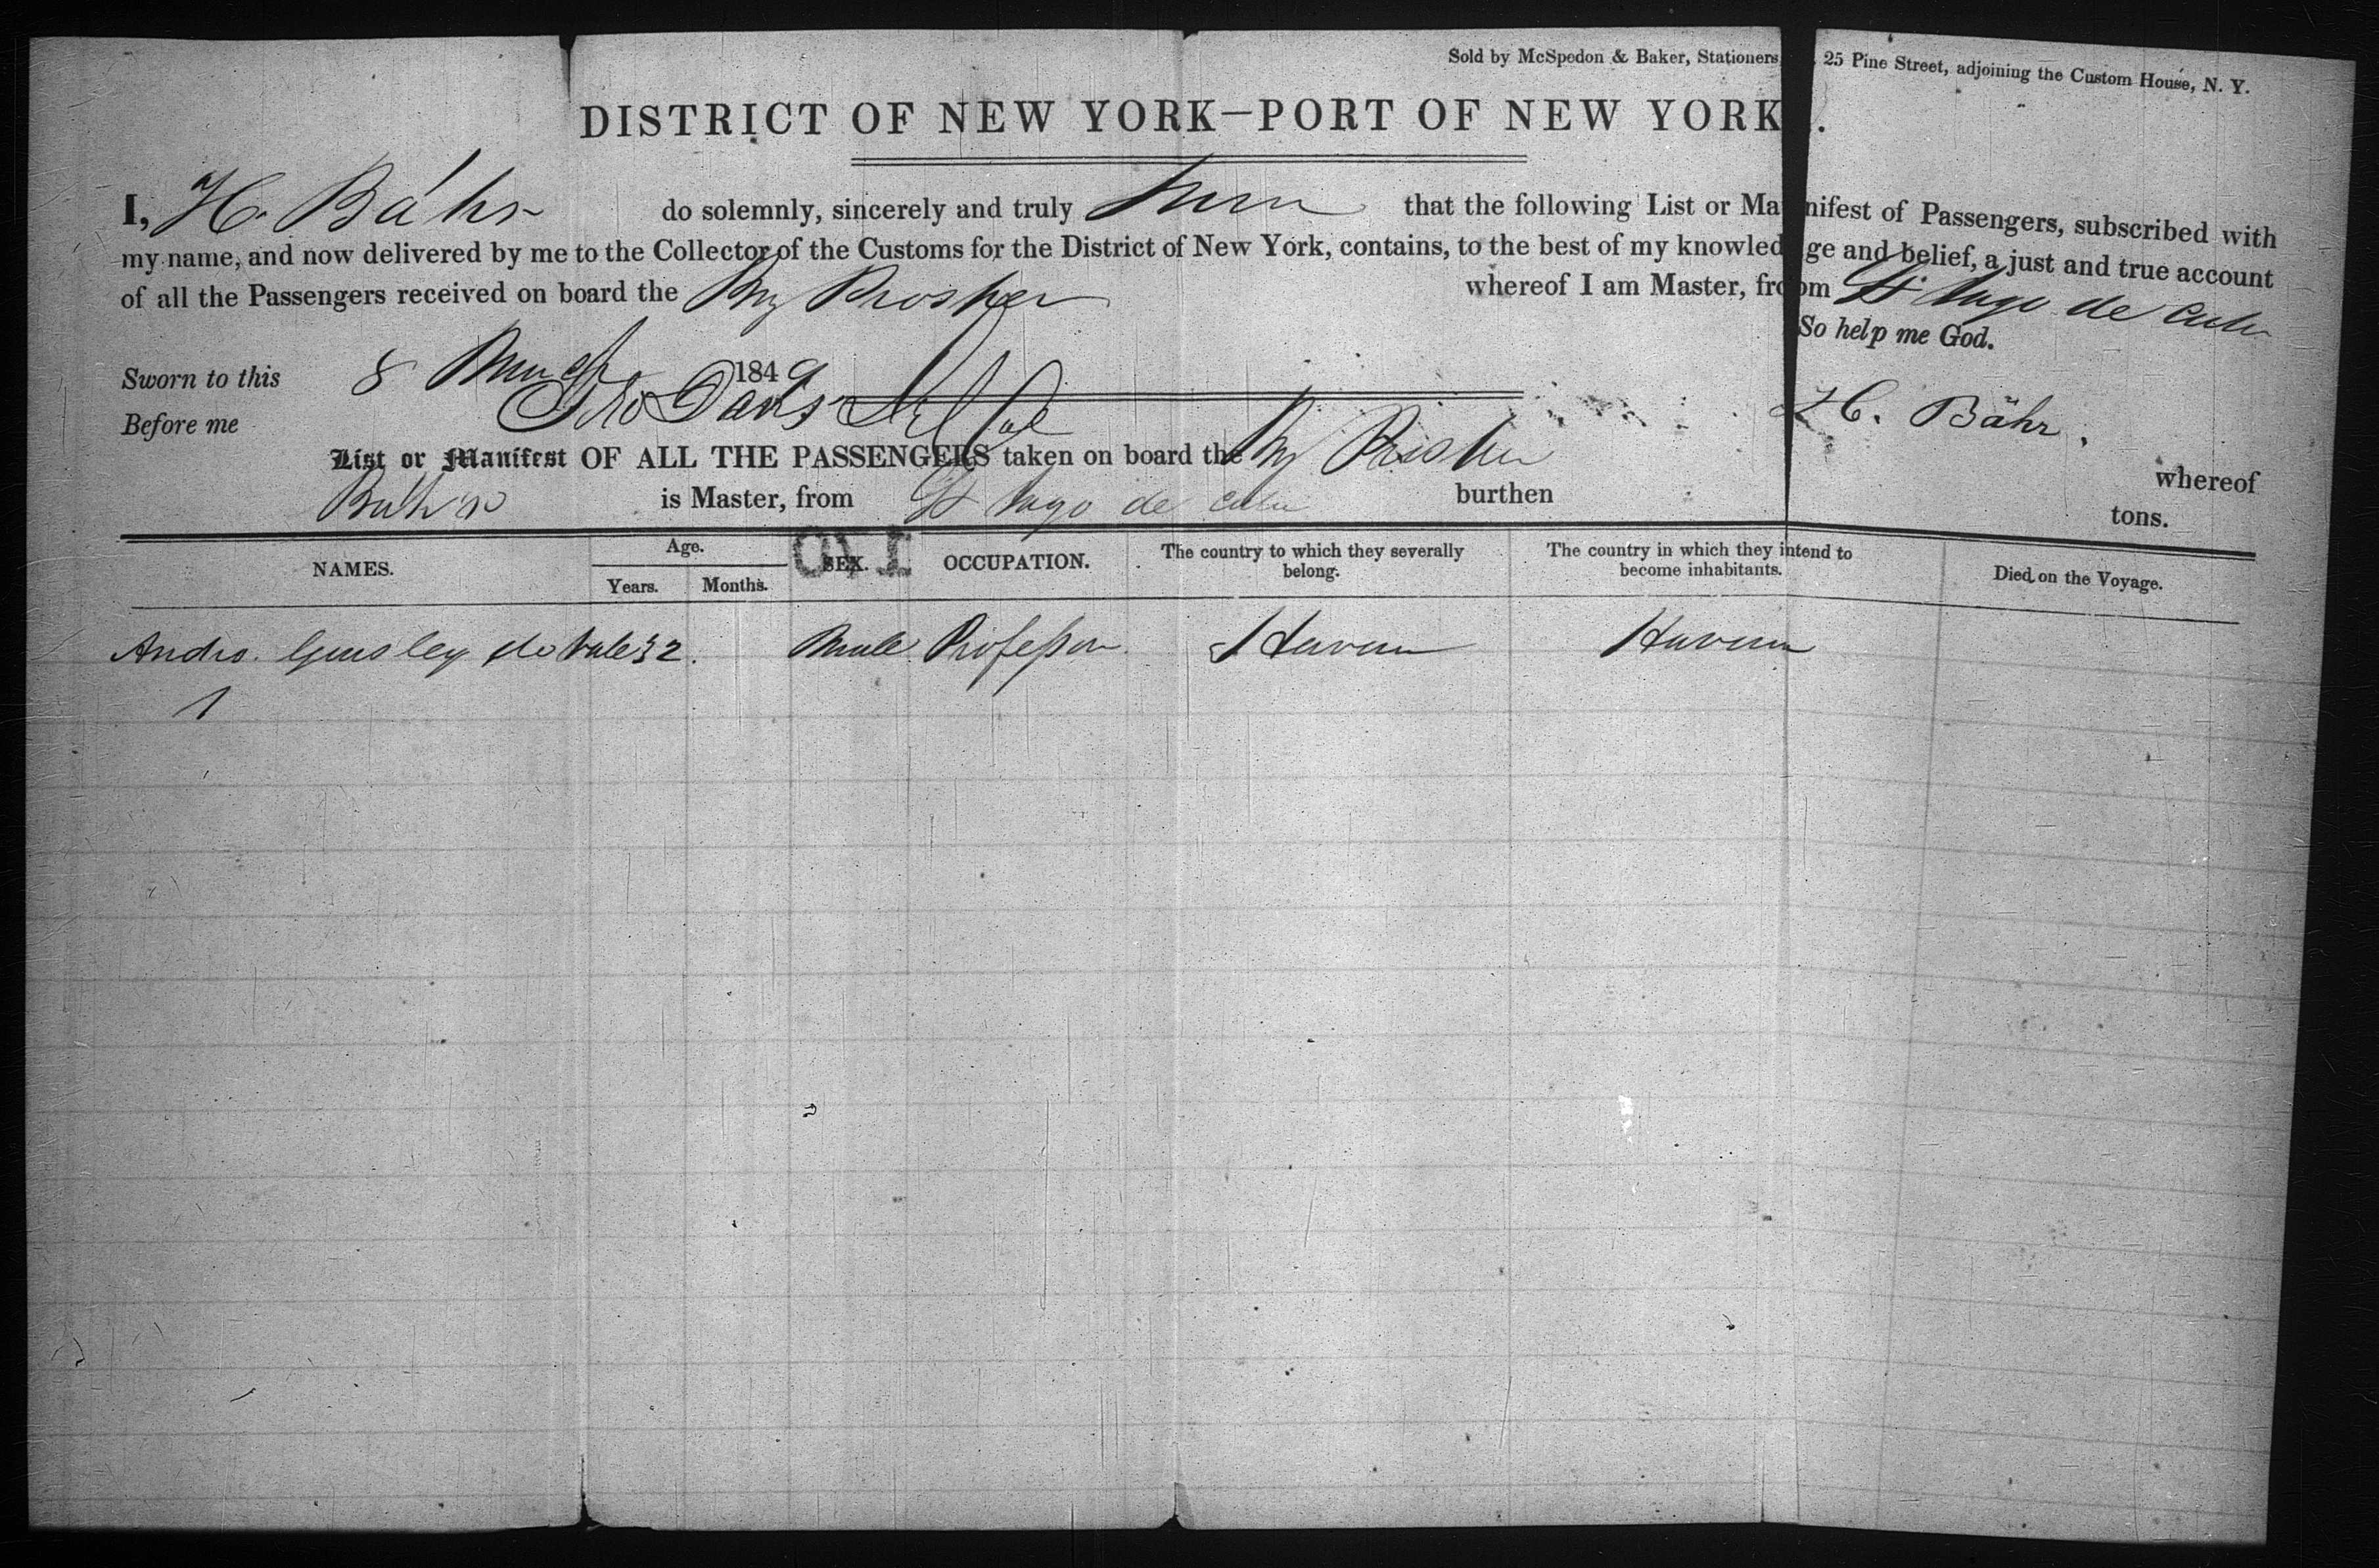 Sold by McSpedon & Baker, Stationers, 25 Pine Street, adjoining the Custom House, N. Y.
DISTRICT OF NEW YORK—PORT OF NEW YORK.
I, H. Bähr do solemnly, sincerely and truly that the following List or Manifest of Passengers, subscribed with
my name, and now delivered by me to the Collector of the Customs for the District of New York, contains, to the best of my knowledge and belief, a just and true account
of all the Passengers received on board the Brig Prosper whereof I am Master, from St Iago de Cuba
So help me God.
Sworn to this 8 March 1849
H. Bähr.
Before me Davis
List or Manifest OF ALL THE PASSENGERS taken on board the Brig Prosper whereof
is Master, from St Iago de Cuba burthen tons.
NAMES. Age. Years. Months. SEX. OCCUPATION. The country to which they severally belong. The country in which they intend to become inhabitants. Died on the Voyage.
Andro. 32. Male Professor Havana Havana
1